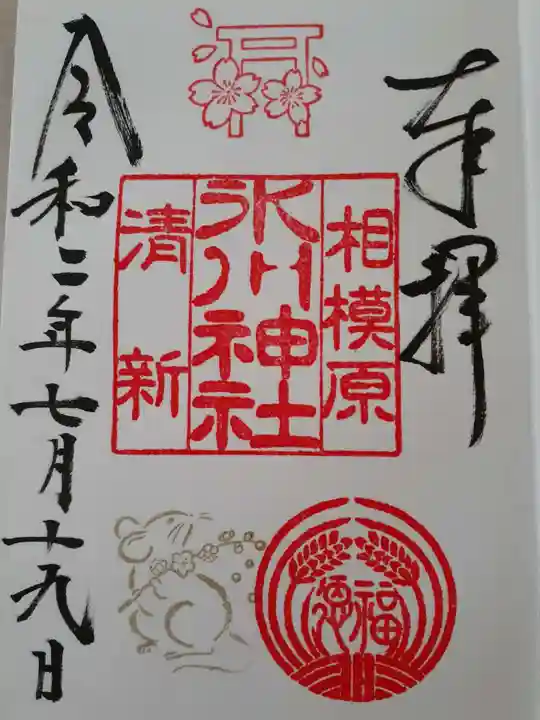 奉拝
相模原
氷川神社
清新
令和二年七月十九日
福徳